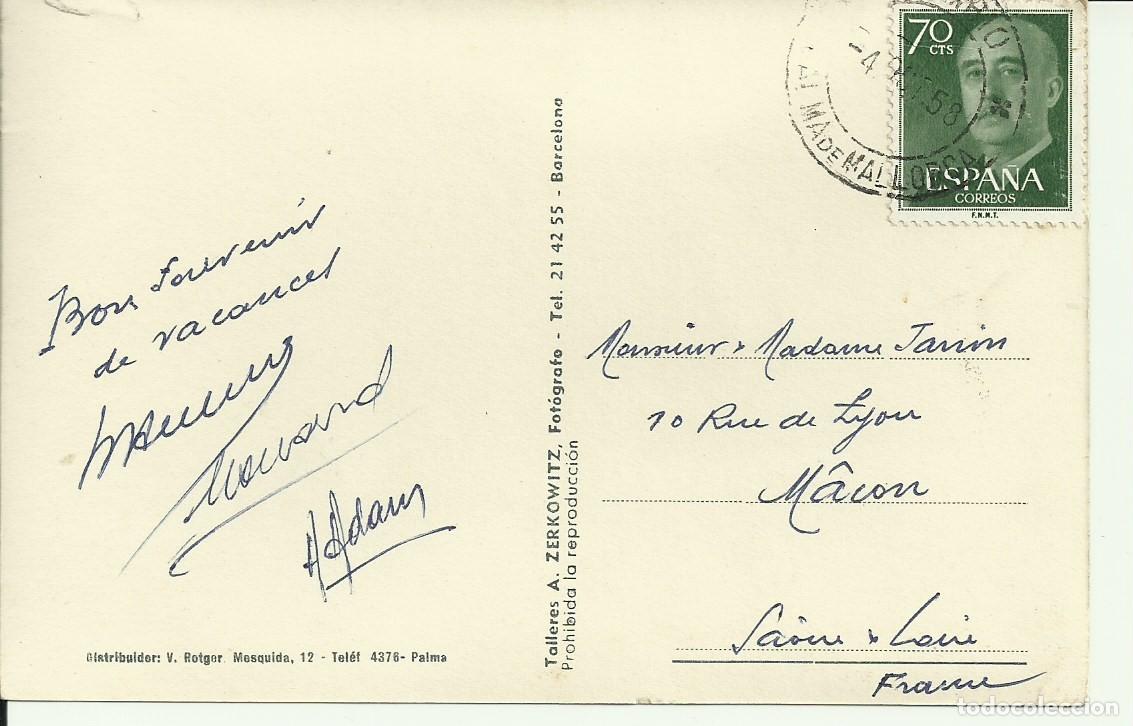 Bon souvenir
de vacances
A Adam
Distribuidor: V. Rotger. Mesquida, 12 - Teléf 4376- Palma
Talleres A. ZERKOWITZ, Fotógrafo - Tel. 21 42 55 - Barcelona
Prohibida la reproducción
70
CTS
ESPAÑA
CORREOS
F.N.M.T.
-4 58
PALMA DE MALLORCA
Monsieur & Madame
10 Rue de Lyon
Mâcon
Saône & Loire
France
todocoleccion